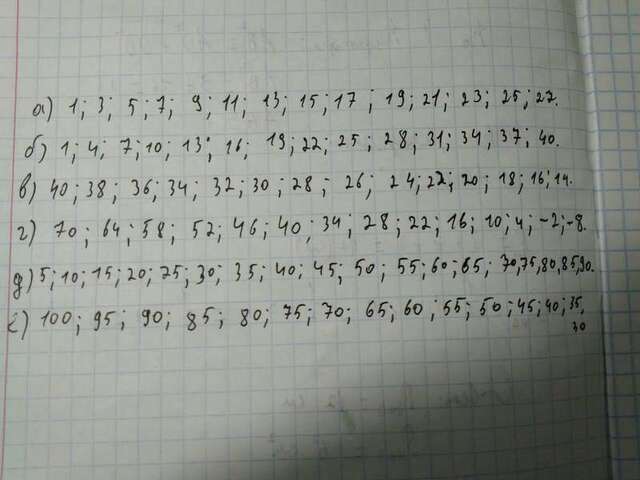 а) 1; 3; 5; 7; 9; 11; 13; 15; 17; 19; 21; 23; 25; 27.
б) 1; 4; 7; 10; 13; 16; 19; 22; 25; 28; 31; 34; 37; 40.
в) 40; 38; 36; 34; 32; 30; 28; 26; 24; 22; 20; 18; 16; 14.
г) 70; 64; 58; 52; 46; 40; 34; 28; 22; 16; 10; 4; -2; -8.
д) 5; 10; 15; 20; 25; 30; 35; 40; 45; 50; 55; 60; 65; 70, 75, 80, 85, 90.
е) 100; 95; 90; 85; 80; 75; 70; 65; 60; 55; 50; 45; 40; 35,
30